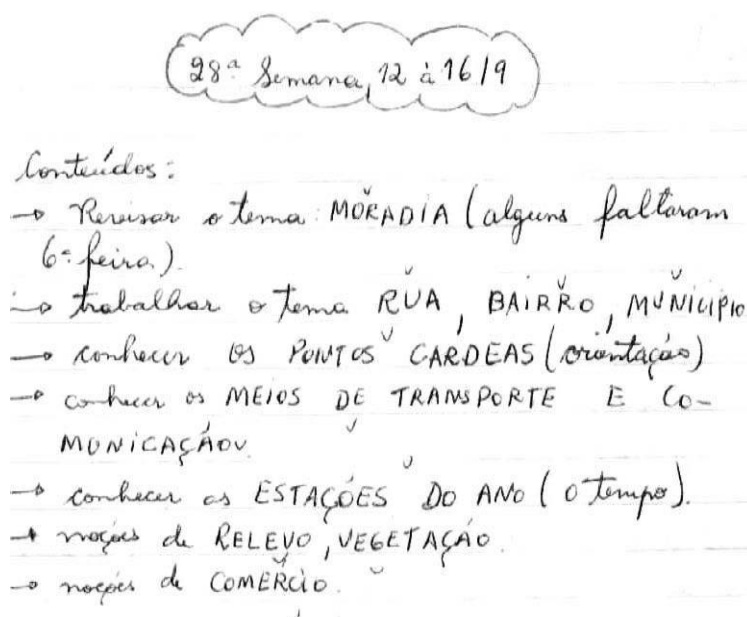 28ª Semana, 12 à 16/9
Conteúdos:
→ Revisar o tema MORADIA (alguns faltaram
6ª feira).
→ trabalhar o tema RUA, BAIRRO, MUNICIPIO
→ conhecer os PONTOS CARDEAS (orientação)
→ conhecer os MEIOS DE TRANSPORTE E CO-
MUNICAÇÃO
→ conhecer as ESTAÇÕES DO ANO (o tempo).
→ noções de RELEVO, VEGETAÇÃO.
→ noções de COMÉRCIO.